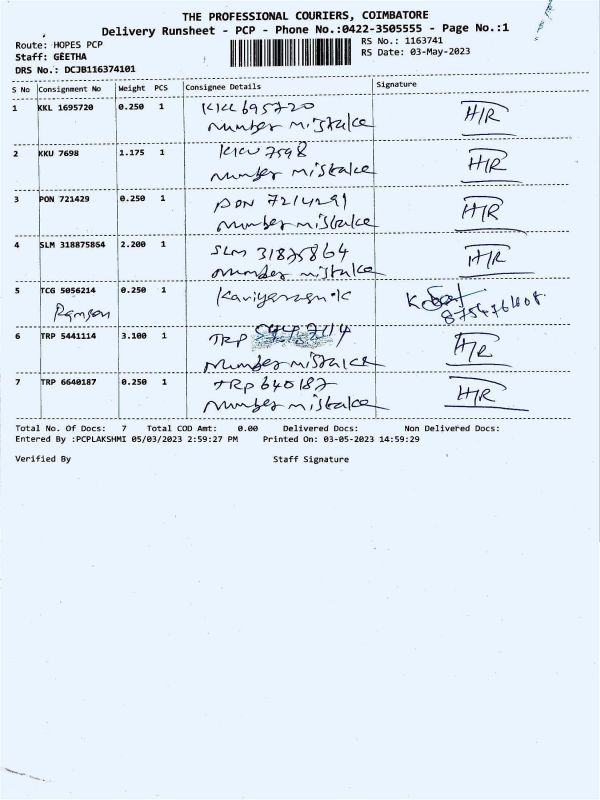 THE PROFESSIONAL COURIERS, COIMBATORE
Delivery Runsheet - PCP - Phone No.:0422-3505555 - Page No.:1
Route: HOPES PCP
RS No.: 1163741
Staff: GEETHA
RS Date: 03-May-2023
DRS No.: DCJB116374101
S No Consignment No Weight PCS Consignee Details Signature
1 KKL 1695720 0.250 1 KKL 695720 H/R
Number mistake
2 KKU 7698 1.175 1 KKU 7598 H/R
Number mistake
3 PON 721429 0.250 1 PON 7214291 H/R
Number mistake
4 SLM 318875864 2.200 1 SLM 31875864 H/R
Number mistake
5 TCG 5056214 0.250 1
6 TRP 5441114 3.100 1 TRP H/R
Number mistake
7 TRP 6640187 0.250 1 TRP 640187 H/R
Number mistake
Total No. Of Docs: 7 Total COD Amt: 0.00 Delivered Docs: Non Delivered Docs:
Entered By :PCPLAKSHMI 05/03/2023 2:59:27 PM Printed On: 03-05-2023 14:59:29
Verified By Staff Signature